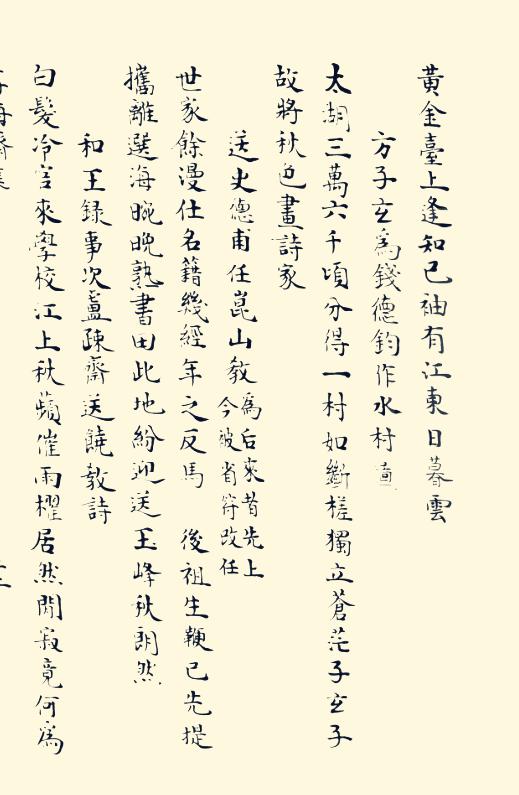 黃金臺上逢知己袖有江東日暮雲
方子玄爲錢德鈞作水村
太湖三萬六千頃分得一村如斷槎獨立蒼茫子玄子
故將秋色畫詩家
送史德甫任崑山教
爲后來昔先上
今被省符改任
世家餘漫仕名籍幾經年之反馬 後祖生鞭已先提
攜離選海晼晚熟書田此地紛迎送玉峰秋朗然
和王錄事次盧疎齋送饒教詩
白髮冷官來學校江上秋蘋催雨櫂居然閒寂竟何爲